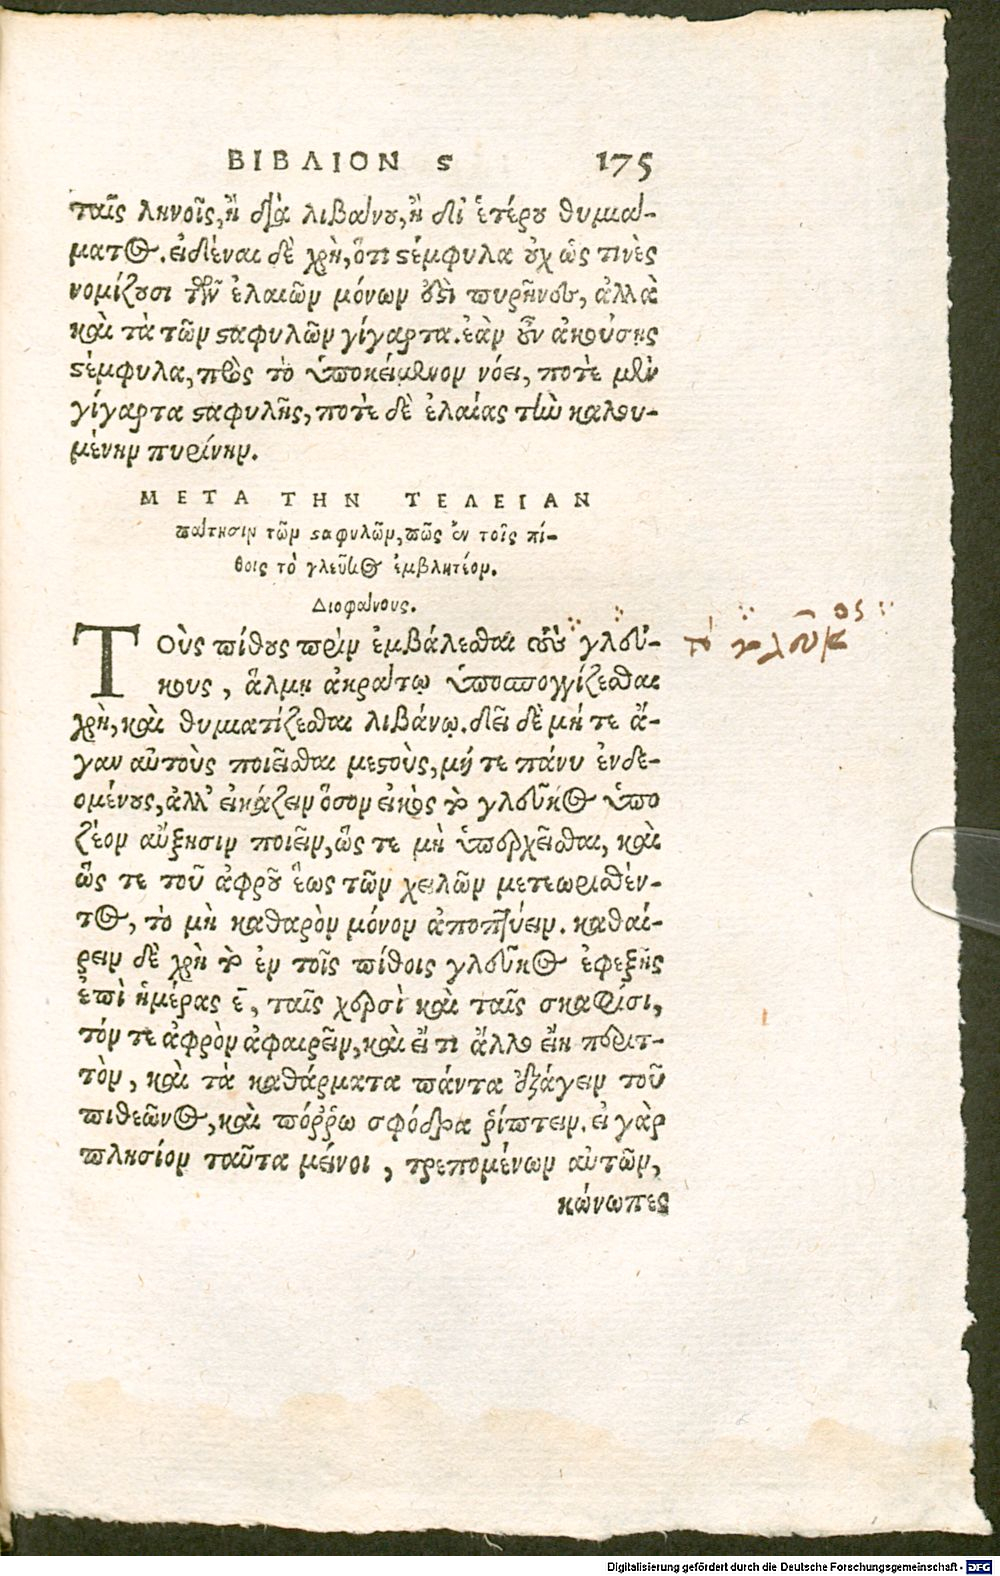 ΒΙΒΛΙΟΝ ϛ 175
ταῖς ληνοῖς, ἢ διὰ λιβάνου, ἢ δι' ἑτέρου θυμιά-
ματος. εἰδέναι δὲ χρὴ, ὅτι στέμφυλα οὐχ ὥς τινὲς
νομίζουσι τῶν ἐλαιῶν μόνων οὐσὶ πυρῆνες, ἀλλὰ
καὶ τὰ τῶν σταφυλῶν γίγαρτα. ἐὰν οὖν ἀκούσῃς
στέμφυλα, πρὸς τὸ ὑποκείμενον νόει, ποτὲ μὲν
γίγαρτα σταφυλῆς, ποτὲ δὲ ἐλαίας τὴν καλου-
μένην πυρίνην.
ΜΕΤΑ ΤΗΝ ΤΕΛΕΙΑΝ
πάτησιν τῶν σταφυλῶν, πῶς ἐν τοῖς πί-
θοις τὸ γλεῦκος ἐμβλητέον.
Διοφάνους.
ΤΟὺς πίθους πρὶν ἐμβάλεσθαι τοῦ γλεύ-
κους, ἅλμῃ ἀκράτῳ ὑποσπογγίζεσθαι
χρὴ, καὶ θυμιατίζεσθαι λιβάνῳ. δεῖ δὲ μή τε ἄ-
γαν αὐτοὺς ποιεῖσθαι μεστοὺς, μή τε πάνυ ἐνδε-
ομένους, ἀλλ' εἰκάζειν ὅσον εἰκὸς τὸ γλεῦκος ὑπο
ζέον αὔξησιν ποιεῖν, ὥς τε μὴ ὑπερχεῖσθαι, καὶ
ὥς τε τοῦ ἀφροῦ ἕως τῶν χειλῶν μετεωρισθέν-
τος, τὸ μὴ καθαρὸν μόνον ἀποπτύειν. καθαί-
ρειν δὲ χρὴ τὸ ἐν τοῖς πίθοις γλεῦκος ἐφεξῆς
ἐπὶ ἡμέρας ε̄, ταῖς χερσὶ καὶ ταῖς σκαφίσι,
τόν τε ἀφρὸν ἀφαιρεῖν, καὶ εἴ τι ἄλλο εἴη περιτ-
τὸν, καὶ τὰ καθάρματα πάντα ἐξάγειν τοῦ
πιθεῶνος, καὶ πόῤῥω σφόδρα ῥίπτειν. εἰ γὰρ
πλησίον ταῦτα μείνοι, τρεπομένων αὐτῶν,
κώνωπες
Digitalisierung gefördert durch die Deutsche Forschungsgemeinschaft - DFG